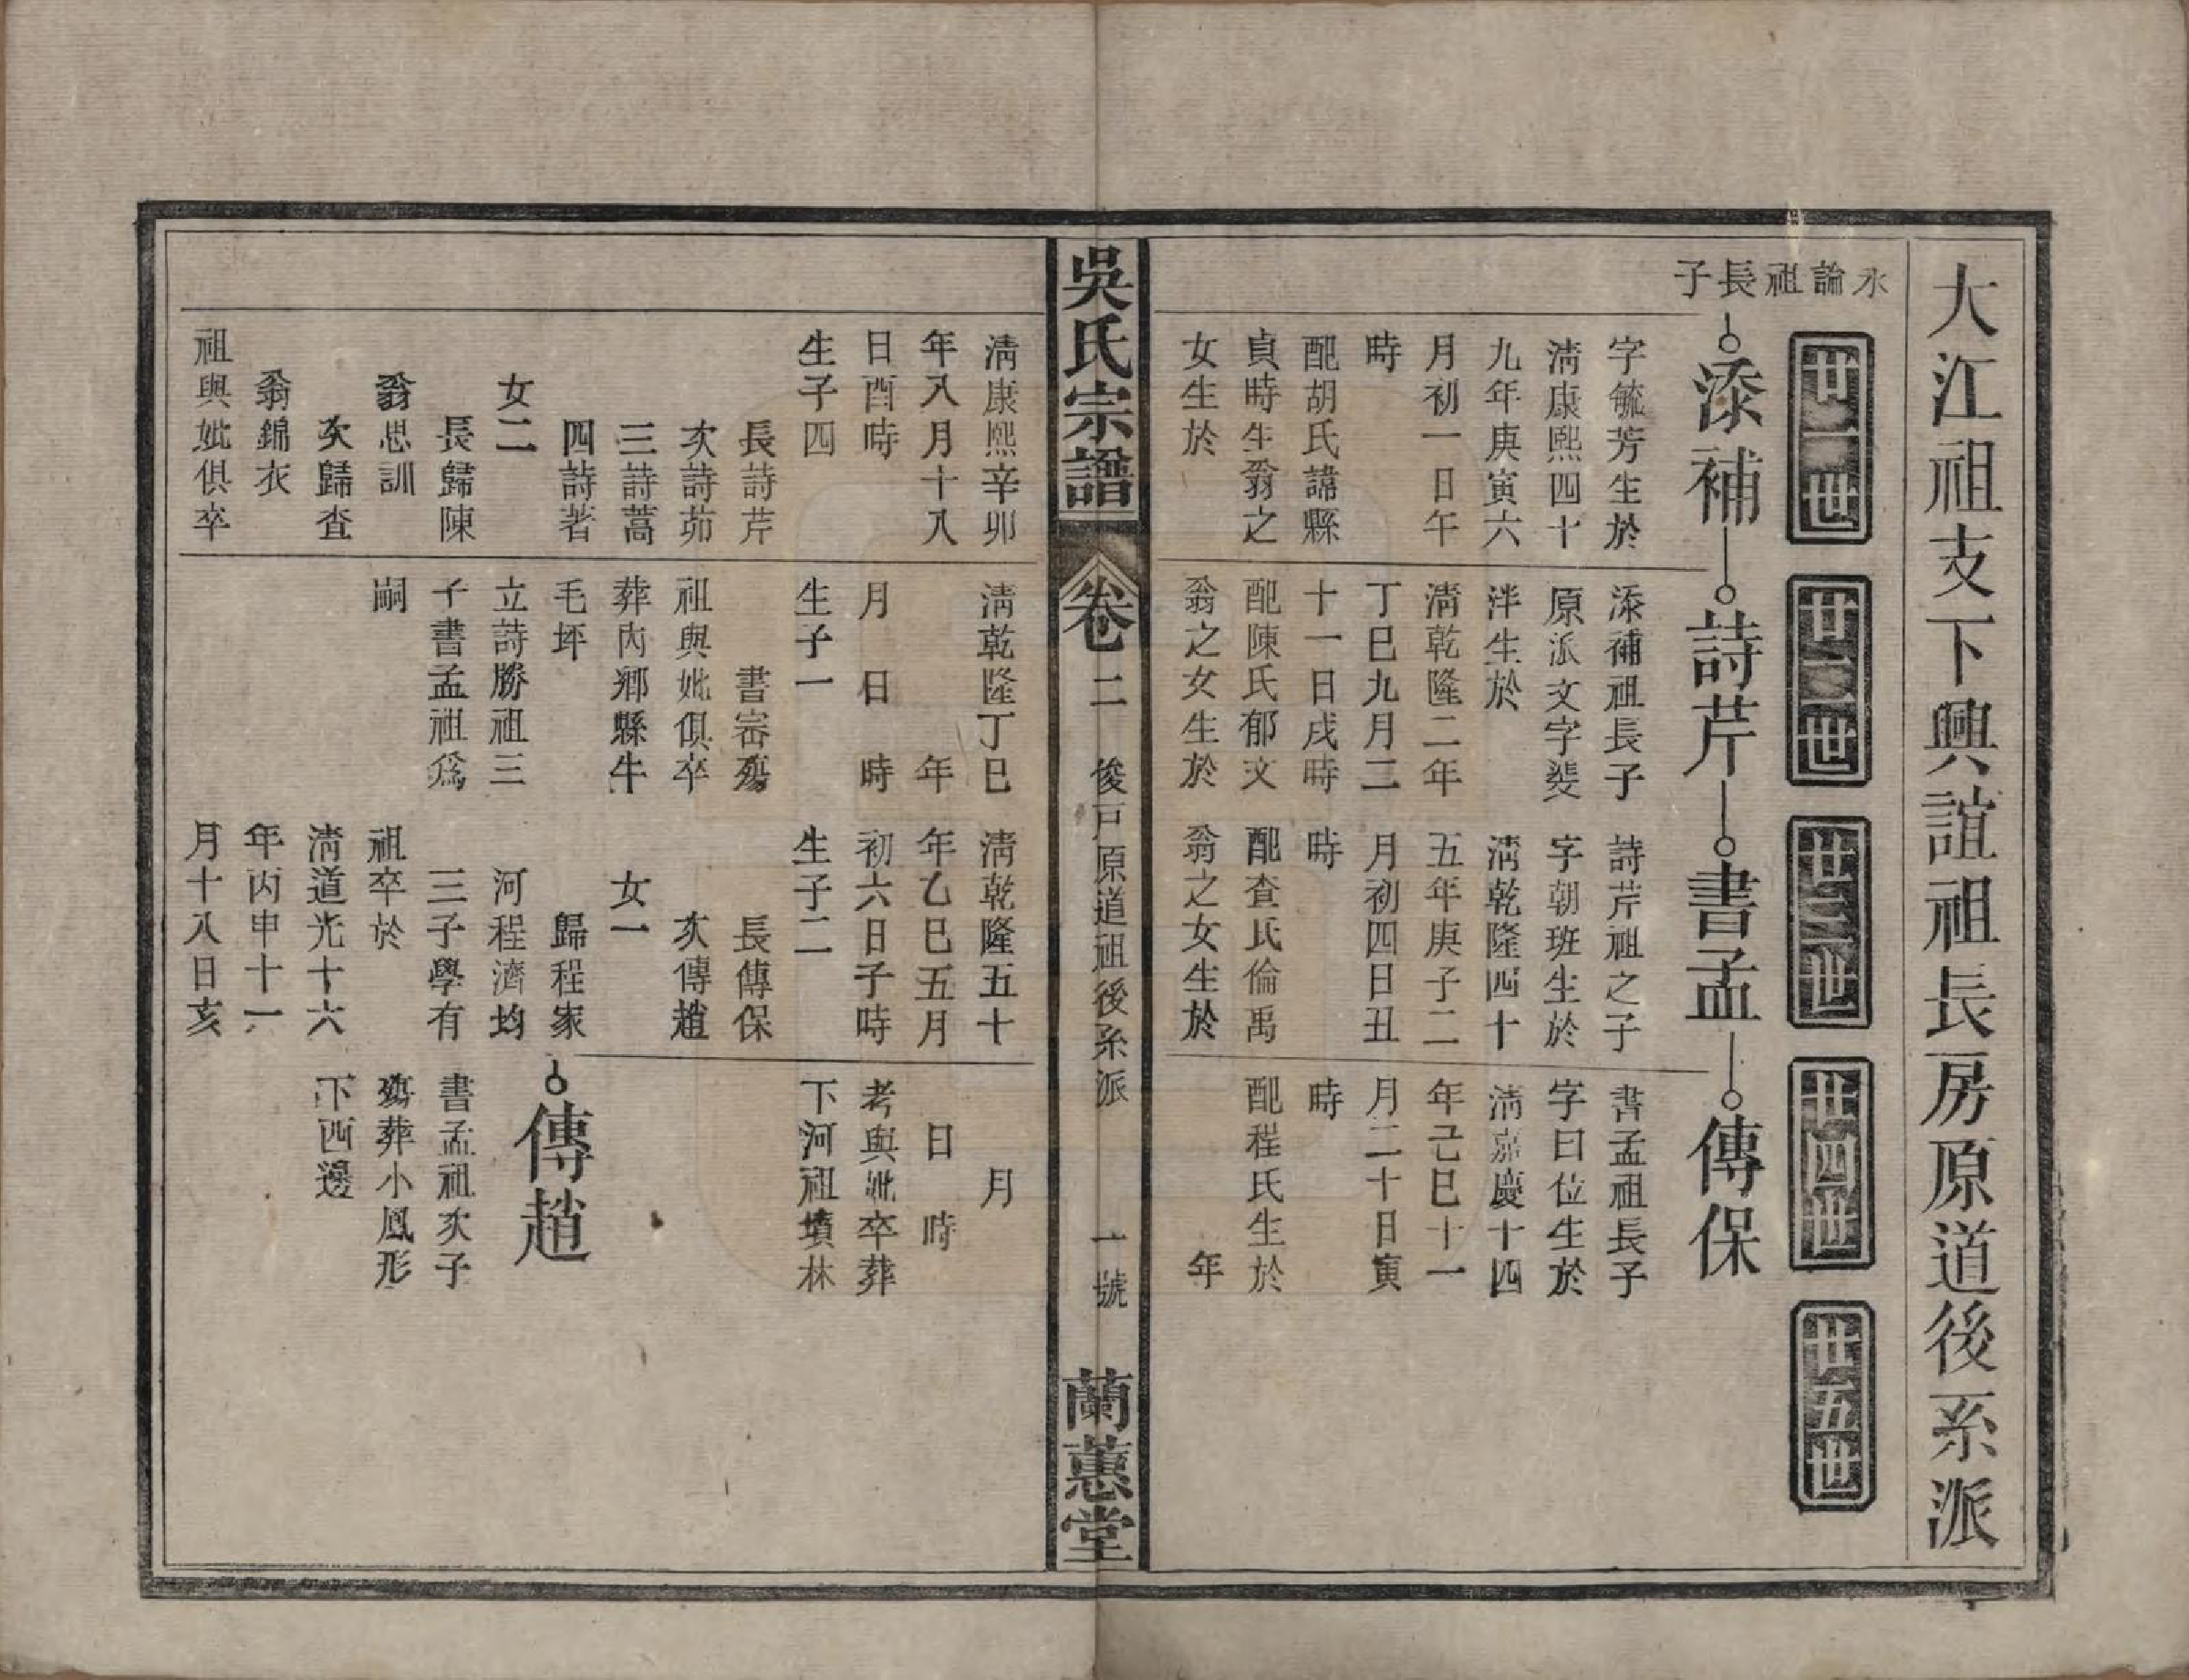 大江祖支下興誼祖長房原道後系派
廿一世
廿二世
廿三世
廿四世
廿五世
永論祖長子
添補
詩芹
書孟
傳保
字毓芳生於
清康熙四十
九年庚寅六
月初一日午
時
配胡氏諱縣
貞時生翁之
女生於
清康熙辛卯
年八月十八
日酉時
生子四
長詩芹
次詩茆
三詩蒿
四詩著
女二
長歸陳
翁思訓
次歸查
翁錦衣
祖與妣俱卒
添補祖長子
原派文字斐
泮生於
清乾隆二年
丁巳九月二
十一日戌時
配陳氏郁文
翁之女生於
清乾隆丁巳
年
月日時
生子一
書宻殤
祖與妣俱卒
葬內鄉縣牛
毛坪
立詩勝祖三
子書孟祖爲
嗣
詩芹祖之子
字朝班生於
清乾隆四十
五年庚子二
月初四日丑
時
配查氏倫禹
翁之女生於
清乾隆五十
年乙巳五月
初六日子時
生子二
長傳保
次傳趙
女一
歸程家
河程濟均
三子學有
祖卒於
清道光十六
年丙申十一
月十八日亥
書孟祖長子
字日位生於
清嘉慶十四
年己巳十一
月二十日寅
時
配程氏生於
年
月
日時
考與妣卒葬
下河祖墳林
傳趙
書孟祖次子
殤葬小鳳形
下西邊
吳氏宗譜
卷二
俊戸原道祖後系派
一號
蘭蕙堂